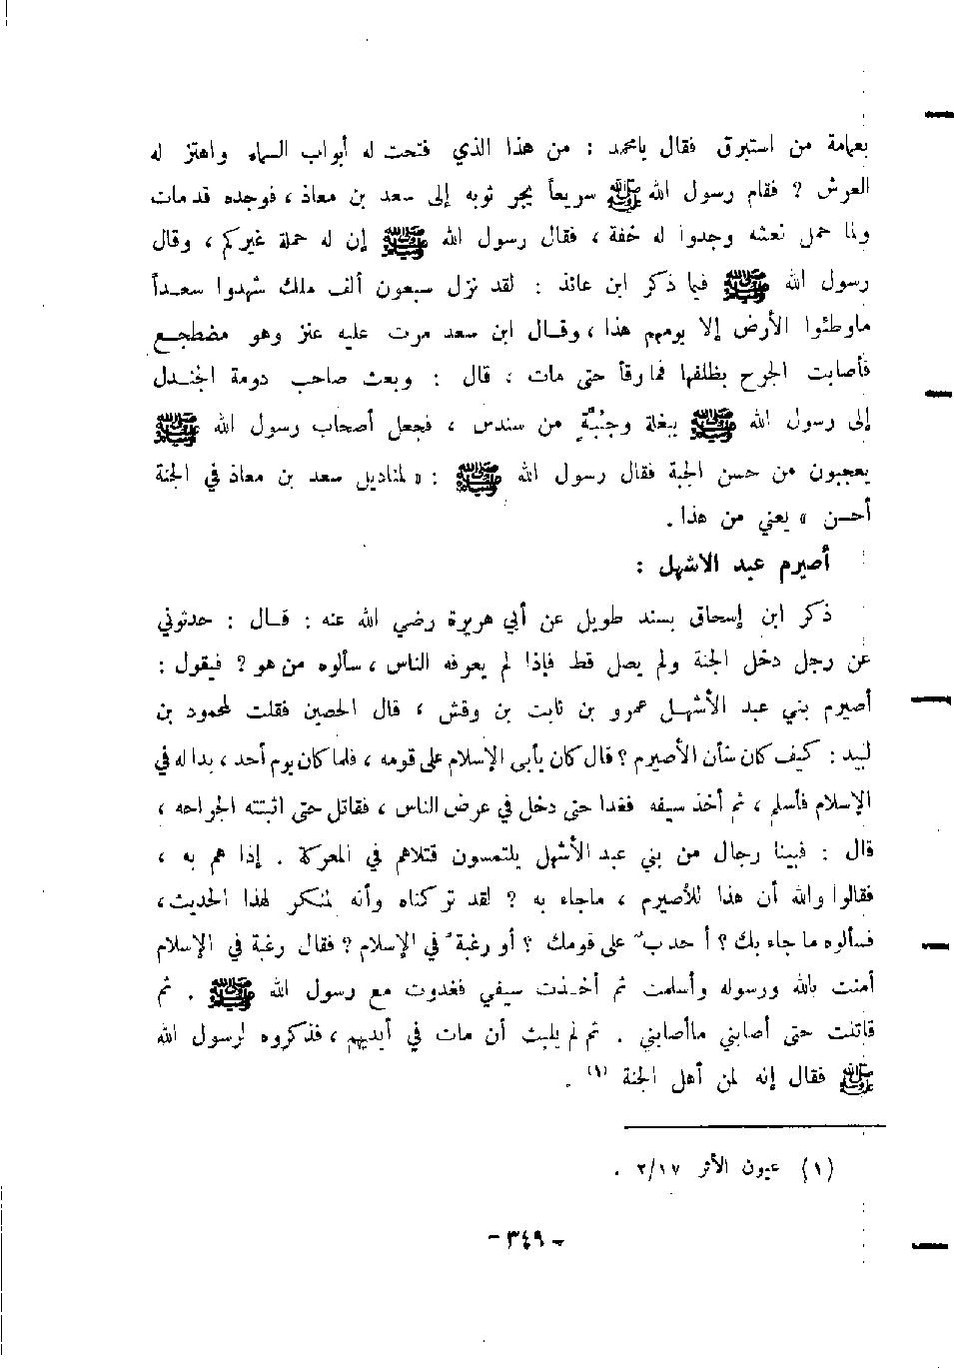 بعمامة من استبرق فقال يامحمد : من هذا الذي فتحت له أبواب السماء واهتز له
العرش ؟ فقام رسول الله ﷺ سريعاً يجر ثوبه إلى سعد بن معاذ ، فوجده قد مات
ولما حمل نعشه وجدوا له خفة ، فقال رسول الله ﷺ إن له حملة غيركم ، وقال
رسول الله ﷺ فيما ذكر ابن عائذ : لقد نزل سبعون ألف ملك شهدوا سعـداً
ماوطئوا الأرض إلا يومهم هذا ، وقـال ابن سعد مرت عليه عنز وهو مضطجـع
فأصابت الجرح بظلفها فمارقأ حتى مات ، قال : وبعث صاحب دومة الجنـدل
إلى رسول الله ﷺ ببغلة وجُبَّةٍ من سندس ، فجعل أصحاب رسول الله ﷺ
يعجبون من حسن الجبة فقال رسول الله ﷺ : « لمناديل سعد بن معاذ في الجنة
أحـسن » يعني من هذا .
أصيرم عبد الاشهل :
ذكر ابن إسحاق بسند طويل عن أبي هريرة رضي الله عنه : قـال : حدثوني
عن رجل دخل الجنة ولم يصل قط فإذا لم يعرفه الناس ، سألوه من هو ؟ فيقول :
أصيرم بني عبد الأشهـل عمرو بن ثابت بن وقش ، قال الحصين فقلت لمحمود بن
لبيد : كيف كان شأن الأصيرم ؟ قال كان يأبى الإسلام على قومه ، فلما كان يوم أحد ، بدا له في
الإسلام فأسلم ، ثم أخذ سيفه فغدا حتى دخل في عرض الناس ، فقاتل حتى اثبتته الجراحه ،
قال : فبينا رجال من بني عبد الأشهل يلتمسون قتلاهم في المعركة . إذا هم به ،
فقالوا والله أن هذا للأصيرم ، ماجاء به ؟ لقد تركناه وأنه لمنكر لهذا الحديث ،
فسألوه ما جاء بك ؟ أ حدبٌ على قومك ؟ أو رغبةً في الإسلام ؟ فقال رغبة في الإسلام
آمنت بالله ورسوله وأسلمت ثم أخـذت سيفي فغدوت مع رسول الله ﷺ . ثم
قاتلت حتى أصابني ماأصابني . ثم لم يلبث أن مات في أيديهم ، فذكروه لرسول الله
ﷺ فقال إنه لمن أهل الجنة (١) .
(١) عيون الأثر ٢/١٧ .
- ٣٤٩ -